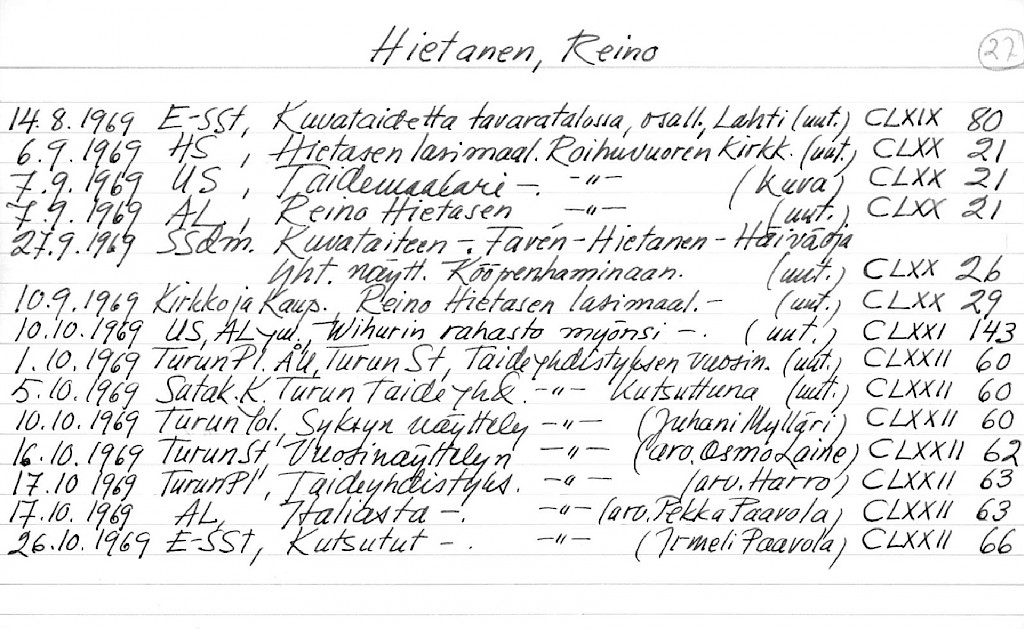 Hietanen, Reino 27
14.8.1969 E-SSt, Kuvataidetta tavaratalossa, osall., Lahti (uut.) CLXIX 80
6.9.1969 HS, Hietasen lasimaal. Roihuvuoren Kirkk. (uut.) CLXX 21
7.9.1969 US, Taidemaalari -. -"- (kuva) CLXX 21
7.9.1969 AL, Reino Hietasen -"- (uut.) CLXX 21
27.9.1969 SSdm. Kuvataiteen -. Favén-Hietanen-Häiväoja
yht. näytt. Kööpenhaminaan. (uut.) CLXX 26
10.9.1969 Kirkko ja Kaup. Reino Hietasen lasimaal.- (uut.) CLXX 29
10.10.1969 US, AL ym., Wihurin rahasto myönsi -. (uut.) CLXXI 143
1.10.1969 TurunPl. ÅU, Turun St, Taideyhdistyksen vuosin. (uut.) CLXXII 60
5.10.1969 Satak.K. Turun Taideyhd. -"- Kutsuttuna (uut.) CLXXII 60
10.10.1969 Turun Yol. Syksyn näyttely -"- (Juhani Mylläri) CLXXII 60
16.10.1969 TurunSt, Vuosinäyttelyn -"- (arv. Osmo Laine) CLXXII 62
17.10 1969 TurunPl, Taideyhdistyks. -"- (arv. Harro) CLXXII 63
17.10.1969 AL, Italiasta -. -"- (arv. Pekka Paavola) CLXXII 63
26.10.1969 E-SSt, Kutsutut -. -"- (Irmeli Paavola) CLXXII 66